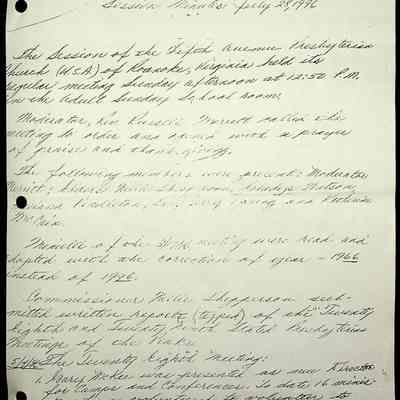 Session Minutes July 28, 1996
The Session of the Fifth Avenue Presbyterian
Church (U.S.A) of Roanoke, Virginia held its
regular meeting Sunday afternoon at 12:50 P.M.
in the Adult Sunday School room.
Moderator, Rev. Russell Merritt called the
meeting to order and opened with a prayer
of praise and thanksgiving.
The following members were present: Moderator
Merritt; Clerk Shepperson,
Pendleton, and
Minutes of the meeting were read and
adopted with the correction of year - 1966
instead of 1996.
Commissioner Shepperson sub-
mitted written reports (typed) of the Twenty
Eighth and Twenty Ninth Stated Presbyterian
Meetings of the
The Twenty Eighth Meeting:
1. Gary McKee was presented as new Director
for Camps and Conferences. To date 16 minis-
volunteered to volunteer to